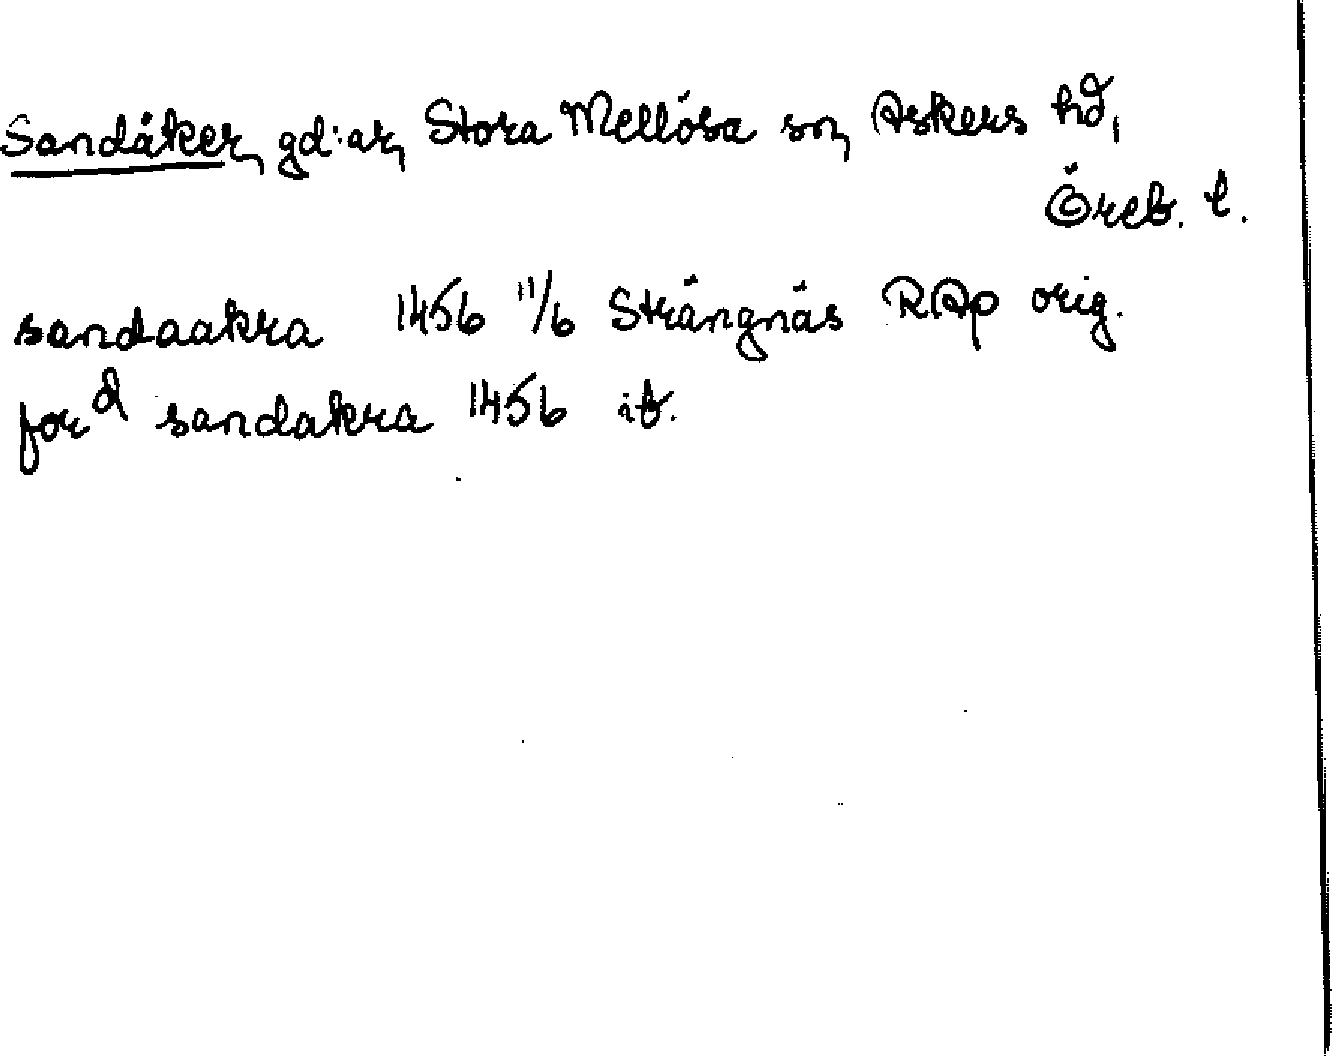 Sandåker, gd:ar, Stora Mellösa sn, Askers hd,
Öreb. l.
sandaakra 1456 11/6 Strängnäs RAp orig.
for d sandakra 1456 ib.